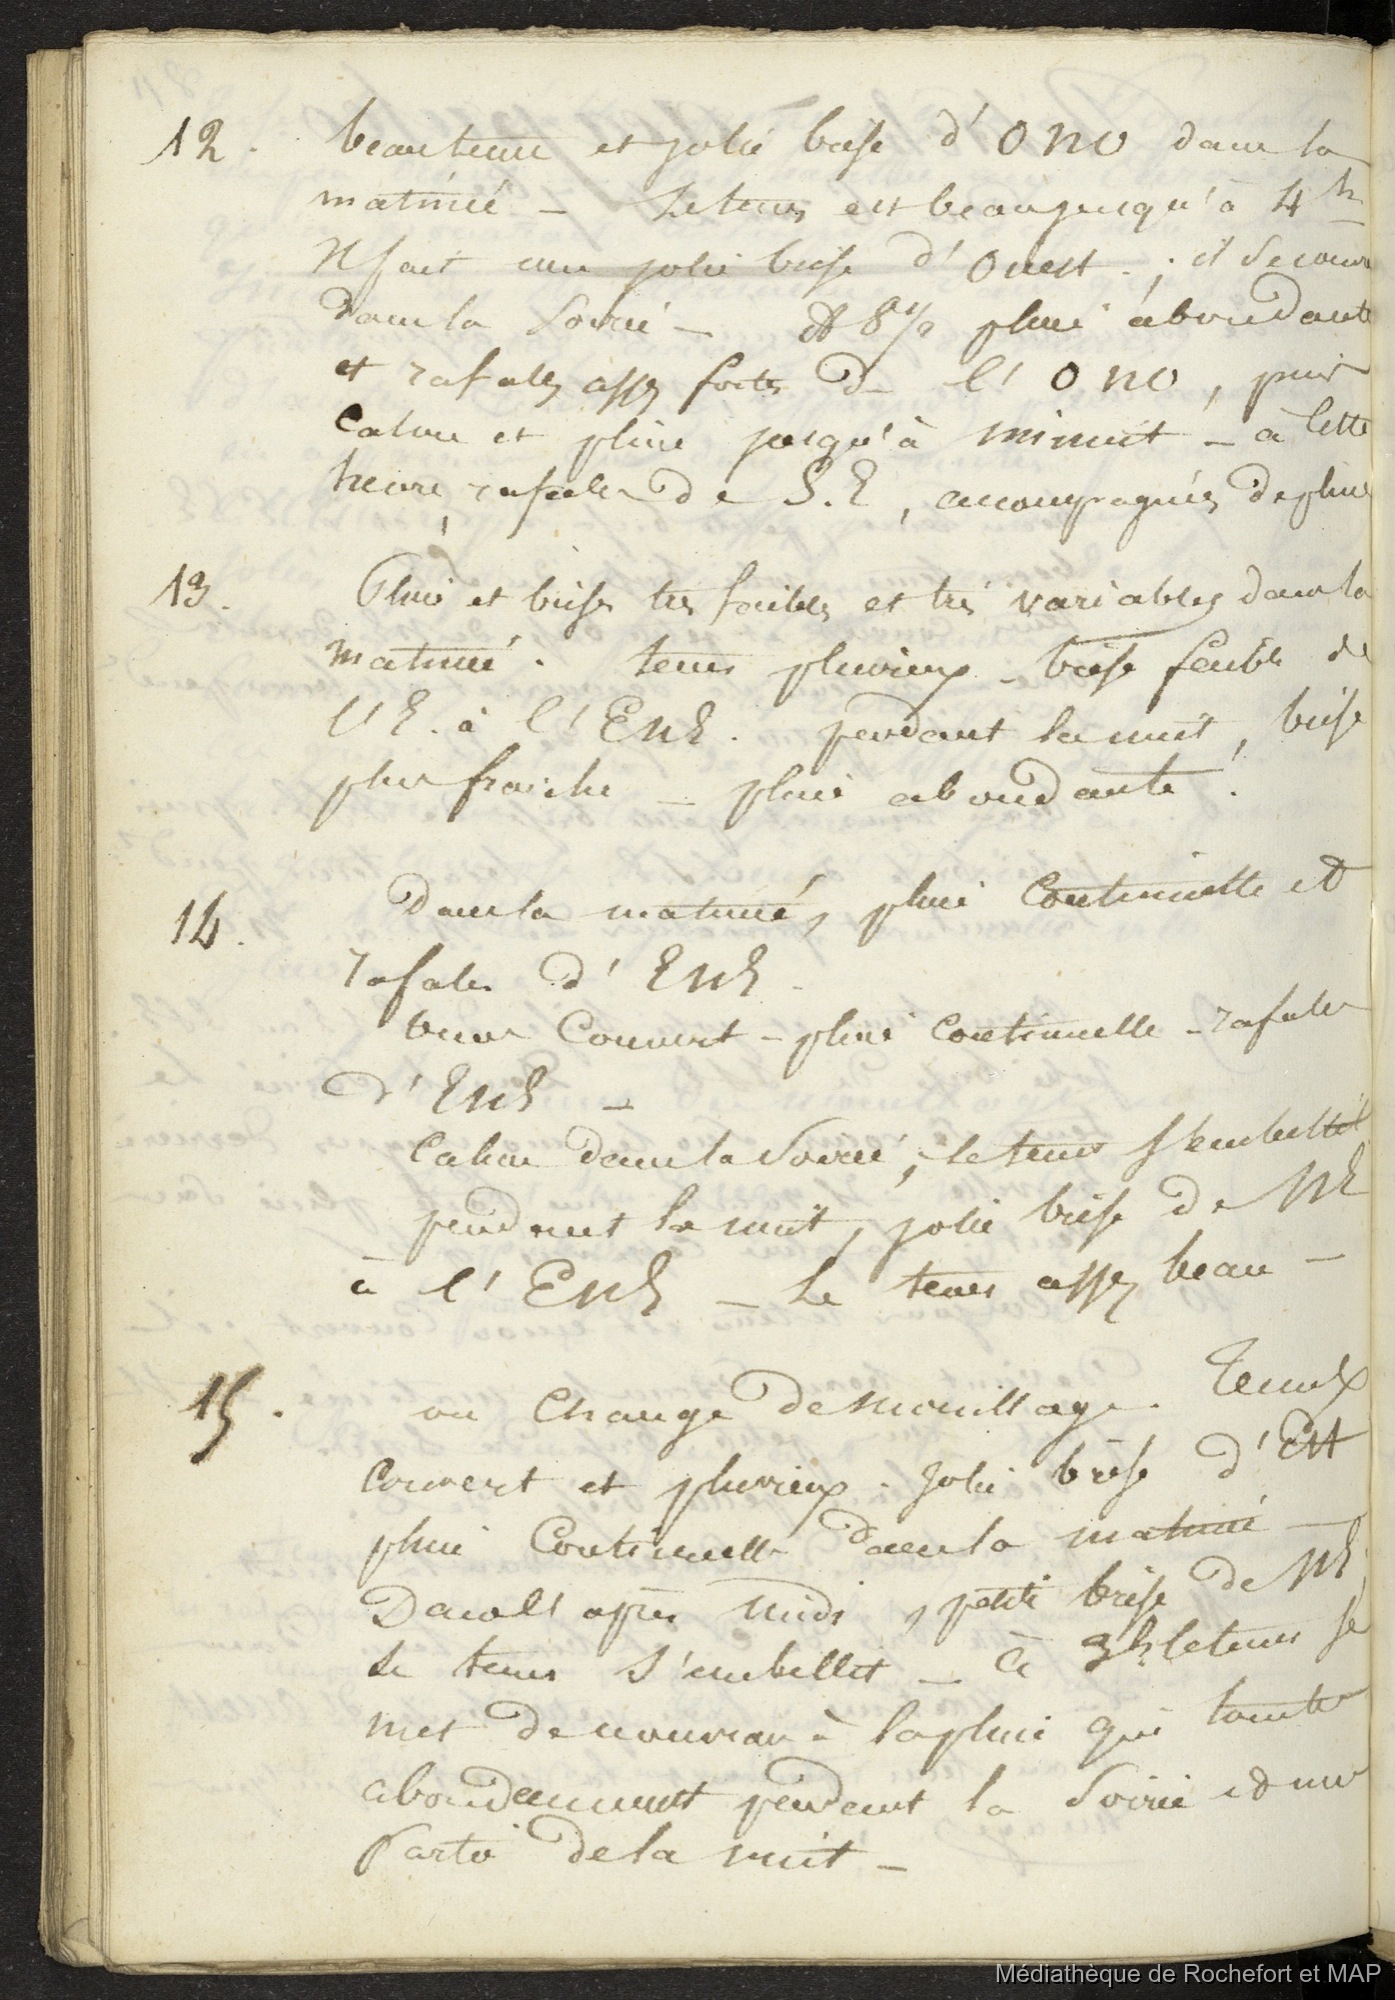 12. beau tems et jolie brise d'ONO dans la
matinée - Le tems est beau jusqu'à 4h
Il fait une jolie brise d'Ouest . ; il se couvre
dans la soirée - à 8 1/2 pluie abondante
et rafales assez fortes de l'ONO, puis
Calme et pluie jusqu'à minuit - à Cette
heure, rafales de S.E, accompagnées de pluie
13. Pluie et brises très faibles et très variables dans la
matinée. tems pluvieux - brise faible de
l'E. à l'ENE. pendant la nuit, brise
plus fraiche - pluie abondante.
14. Dans la matinée, pluie Continuelle et
rafales d'ENE.
tems Couvert - pluie Continuelle - rafales
d'ENE -
Calme dans la soirée ; le tems s'embellit
pendant la nuit, jolie brise de NE
à l'ENE - Le tems assez beau -
15. on Change de mouillage. Tems
Couvert et pluvieux. Jolie brise d'Est
pluie Continuelle dans la matinée -
Dans l'après midi, petite brise de NE,
le tems s'embellit - à 3h le tems se
met de nouveau à la pluie qui tombe
abondamment pendant la soirée et une
Partie de la nuit -
Médiathèque de Rochefort et MAP